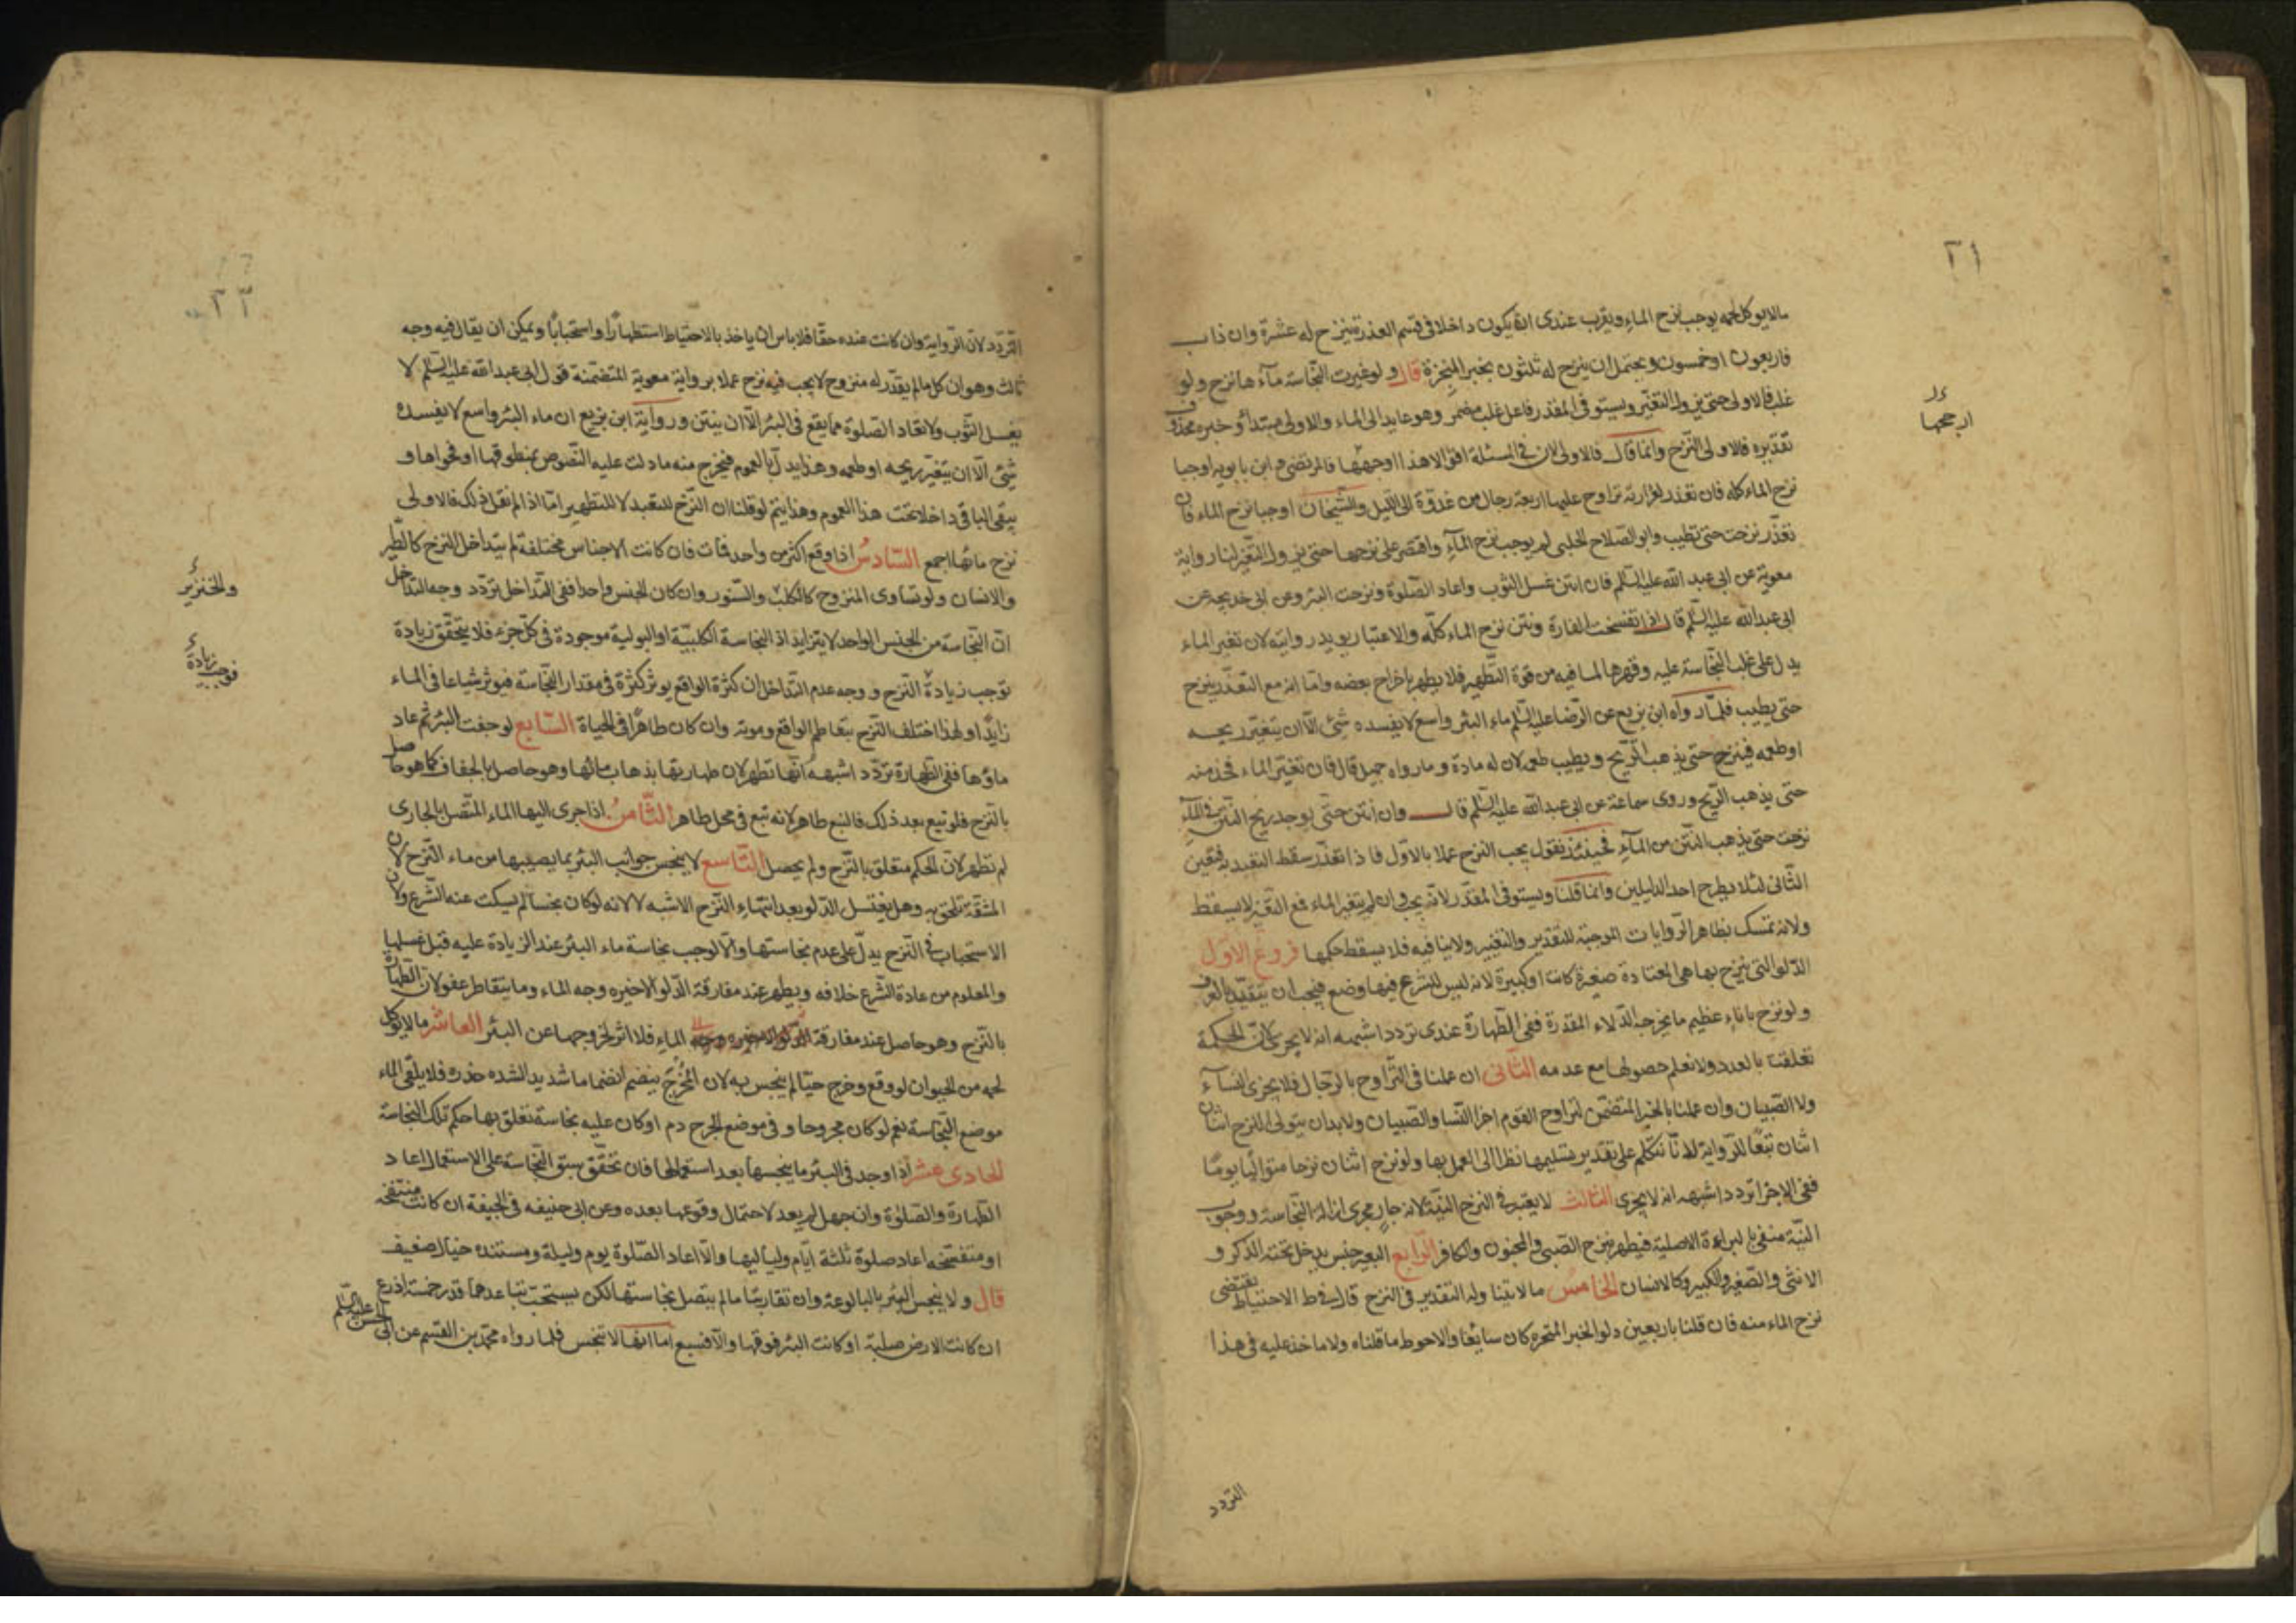 ٢١
مالايوكل لحمه يوجب نزح الماء ويقرب عندى ان يكون داخلا فى قسم العذرة ينزح له عشرة وان ذاب
فاربعون او خمسون ويحتمل ان ينزح له ثلثون بخبر المنجرة قال ولو غيرت النجاسة مآءها نزح ولو
غلب فالاولى حتى يزول التغيّر ويستوفى المقدر فاعل غلب مضمر وهو عايد الى الماء والاولى مبتدأ وخبره محذوف
تقديره فالاولى النزح وانما قال فالاولى لان فى المسئلة اقوالا هذا اوجهها فالمرتضى وابن بابويه اوجبا
ارجحها
نزح الماء كله فان تعذر لغزارته تراوح عليها اربعة رجال من غدوة الى الليل والشيخان اوجبا نزح الماء فان
تعذّر نزحت حتى تطيب وابو الصلاح الحلبى لم يوجب نزح المآء واقتصر على نزحها حتى يزول التغيّر لنا رواية
معوية عن ابى عبد الله عليه السلم فان انتن غسل الثوب واعاد الصلوة ونزحت البئر وعن ابى خديجة عن
ابى عبدالله عليه السلم قال اذا تفسخت الفارة ونتن نزح الماء كلّه والاعتبار يويد روايته لان تغير الماء
يدل على غلب النجاسة عليه وقهرها لما فيه من قوة التطهير فلا يطهر باخراج بعضه واما انه مع التعذر ينزح
حتى يطيب فلما رواه ابن بزيع عن الرضا عليه السلم ماء البئر واسع لا يفسده شئ الّا ان يتغيّر ريحه
او طعمه فينزح حتى يذهب الريح ويطيب طعمه لان له مادة وما رواه جميل قال فان تغيّر الماء فخذ منه
حتى يذهب الريح وروى سماعة عن ابى عبدالله عليه السلم قال وان انتن حتى يوجد ريح النتن فى المآء
نزحت حتى يذهب النتن من المآء فحينئذ نقول يجب النزح عملا بالاول فاذا تعذّر سقط التعبد به فتعين
الثانى لئلا يطرح احد الدليلين وانما قلنا ويستوفى المقدّر لانه يجب وان لم يتغير الماء فمع التغير لا يسقط
ولانه تمسك بظاهر الروايات الموجبة للتقدير والتغيير ولا ينافيه فلا يسقط حكمها فروع الاول
الدلو التى ينزح بها هى المعتادة صغيرة كانت او كبيرة لانه ليس للشرع فيها وضع فيجب ان يتقيّد بالعرف
ولو نزح باناء عظيم ما يخرجه الدلاء المقدرة ففى الطهارة عندى تردد اشبهه انه لا يجزى لان الحكمة
تعلقت بالعدد ولا نعلم حصولها مع عدمه الثانى ان عملنا فى التراوح بالرجال فلا يجزى النسآء
ولا الصبيان وان عملنا بالخبر المتضمن لتراوح القوم اجزا النسا والصبيان ولابد ان يتولى النزح اثنان
اثنان تبعًا للرواية لانا نتكلم على تقدير تسليمها نظرا الى العمل بها ولو نزح اثنان نزحا متواليا يومًا
ففى الاجزا تردد اشبهه انه لا يجزى الثالث لا يعتبر فى النزح النيّة لانه جار مجرى ازالة النجاسة ووجوب
النيّة منفى بالبراءة الاصلية فيطهر بنزح الصبى والمجنون والكافر الرابع البعير جنس يدخل تحته الذكر و
الانثى والصغير والكبير وكالانسان الخامس ما لا يتناوله التقدير فى النزح قال فى ط الاحتياط يقتضى
نزح الماء منه فان قلنا باربعين دلوا لخبر المتحره كان سائغا والاحوط ما قلناه ولا ماخذ عليه فى هذا
التردد
٢٢
التردد لان الرواية وان كانت عنده حقا فلا باس ان ياخذ بالاحتياط استظهارا واستحبابا ويمكن ان يقال فيه وجه
ثالث وهو ان كل ما لم يقدّر له منزوح لا يجب فيه نزح عملا برواية معوية المتضمنة قول ابى عبدالله عليه السلم لا
يغسل الثوب ولا تعاد الصلوة مما يقع فى البئر الّا ان ينتن ورواية ابن بزيع ان ماء البئر واسع لا يفسده
شئ الّا ان يتغيّر ريحه او طعمه وهذا يدل بالعموم فيخرج منه ما دلت عليه النصوص بمنطوقها او فحواها و
يبقى الباقى داخلا تحت هذا العموم وهذا يتم لو قلنا ان النزح للتعبد لا للتطهير اما اذا لم نقل ذلك فالاولى
نزح مائها اجمع السادس اذا وقع اكثر من واحد فمات فان كانت الاجناس مختلفة لم يتداخل النزح كالطير
والانسان ولو تساوى المنزوح كالكلب والسنور وان كان الجنس واحدا ففى التداخل تردد وجه التداخل
والخنزير
ان النجاسة من الجنس الواحد لا يتزايد اذ النجاسة الكلبيّة او البولية موجودة فى كل جزء فلا يتحقق زيادة
توجب زيادة النزح ووجه عدم التداخل ان كثرة الواقع يوثر كثرة فى مقدار النجاسة فيوثر شياعا فى الماء
فوجب زيادة
زايدا ولهذا اختلف النزح بتعاظم الواقع وموته وان كان طاهرا فى الحياة السابع لو جفت البئر ثم عاد
ماؤها ففى الطهارة تردد اشبهه انها تطهر لان طهارتها بذهاب مائها وهو حاصل بالجفاف كما هو حاصل
بالنزح فلو نبع بعد ذلك فالنبع طاهر لانه نبع فى محل طاهر الثامن اذا جرى اليها الماء المتصل بالجارى
لم تطهر لان الحكم متعلق بالنزح ولم يحصل التاسع لا ينجس جوانب البئر بما يصيبها من ماء النزح لان
المشقة تلحق به وهل يغسل الدلو بعد انتهاء النزح الاشبه لا لانه لو كان نجسا لم يسكت عنه الشرع ولان
الاستحباب فى النزح يدل على عدم نجاستها والا لوجب نجاسة ماء البئر عند الزيادة عليه قبل غسلها
والمعلوم من عادة الشرع خلافه ويطهر عند مفارقة الدلو الاخيره وجه الماء وما يتقاطر عفو لان الطهارة
بالنزح وهو حاصل عند مفارقة الدلو الاخيره وجه الماء فلا اثر لخروجها عن البئر العاشر ما لا يوكل
لحمه من الحيوان لو وقع وخرج حيا لم ينجس به لان المخرج ينضم انضماما شديدا لشده حذره فلا يلقى الماء
موضع النجاسة نعم لو كان مجروحا وفى موضع الجرح دم او كان عليه نجاسة تعلق بها حكم تلك النجاسة
الحادى عشر اذا وجد فى البئر ما ينجسها بعد استعمالها فان تحقق سبق النجاسة على الاستعمال اعاد
الطهارة والصلوة وان جهل لم يعد لاحتمال وقوعها بعده وعن ابى حنيفه فى الجيفة ان كانت منتفخه
او متفسخه اعاد صلوة ثلثة ايام ولياليها والا اعاد الصلوة يوم وليلة ومستنده خيال ضعيف
قال ولا ينجس البئر بالبالوعة وان تقاربتا ما لم يتصل نجاستها لكن يستحب تباعدهما قدر خمسة اذرع
ان كانت الارض صلبة او كانت البئر فوقها والا فسبع اما انها لا تنجس فلما رواه محمد بن القسم عن ابى الحسن عليه السلم